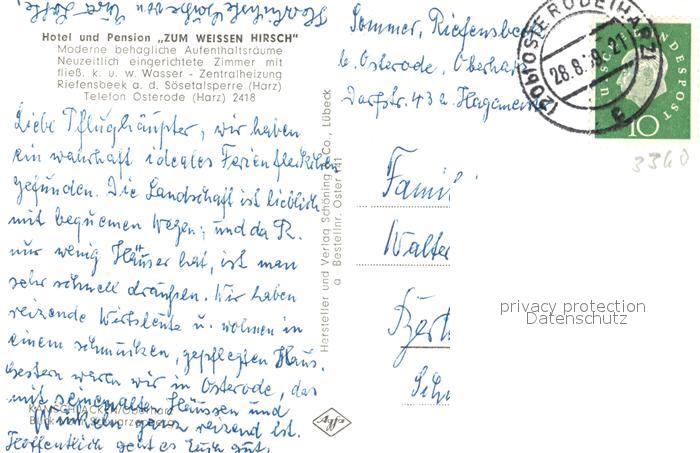 Herzlichste Grüße von
Hotel und Pension „ZUM WEISSEN HIRSCH"
Moderne behagliche Aufenthaltsräume
Neuzeitlich eingerichtete Zimmer mit
fließ. k. u. w. Wasser - Zentralheizung
Riefensbeek a. d. Sösetalsperre (Harz)
Telefon Osterode (Harz) 2418
Liebe Pflughäupter, wir haben
ein wahrhaft ideales Ferienfleckchen
gefunden. Die Landschaft ist lieblich
mit bequemen Wegen; und da R.
nur wenig Häuser hat, ist man
sehr schnell draußen. Wir haben
reizende Wirtsleute u. wohnen in
einem schmucken, gepflegten Haus.
Gestern waren wir in Osterode, das
mit seinen alten Häusern und
Winkeln ganz reizend ist.
Hoffentlich geht es Euch gut.
KAMSCHLACKEN/Oberharz
Hersteller und Verlag Schöning & Co., Lübeck
a Bestellnr. Oster 141
Agfa
Sommer, Riefensbeek
b. Osterode, Oberharz
Dorfstr. 43 b. Hagemann
(20b) OSTERODE (HARZ)
28.8.59-21
DEUTSCHE BUNDESPOST
10
3360
Famil
Walter
privacy protection
Datenschutz